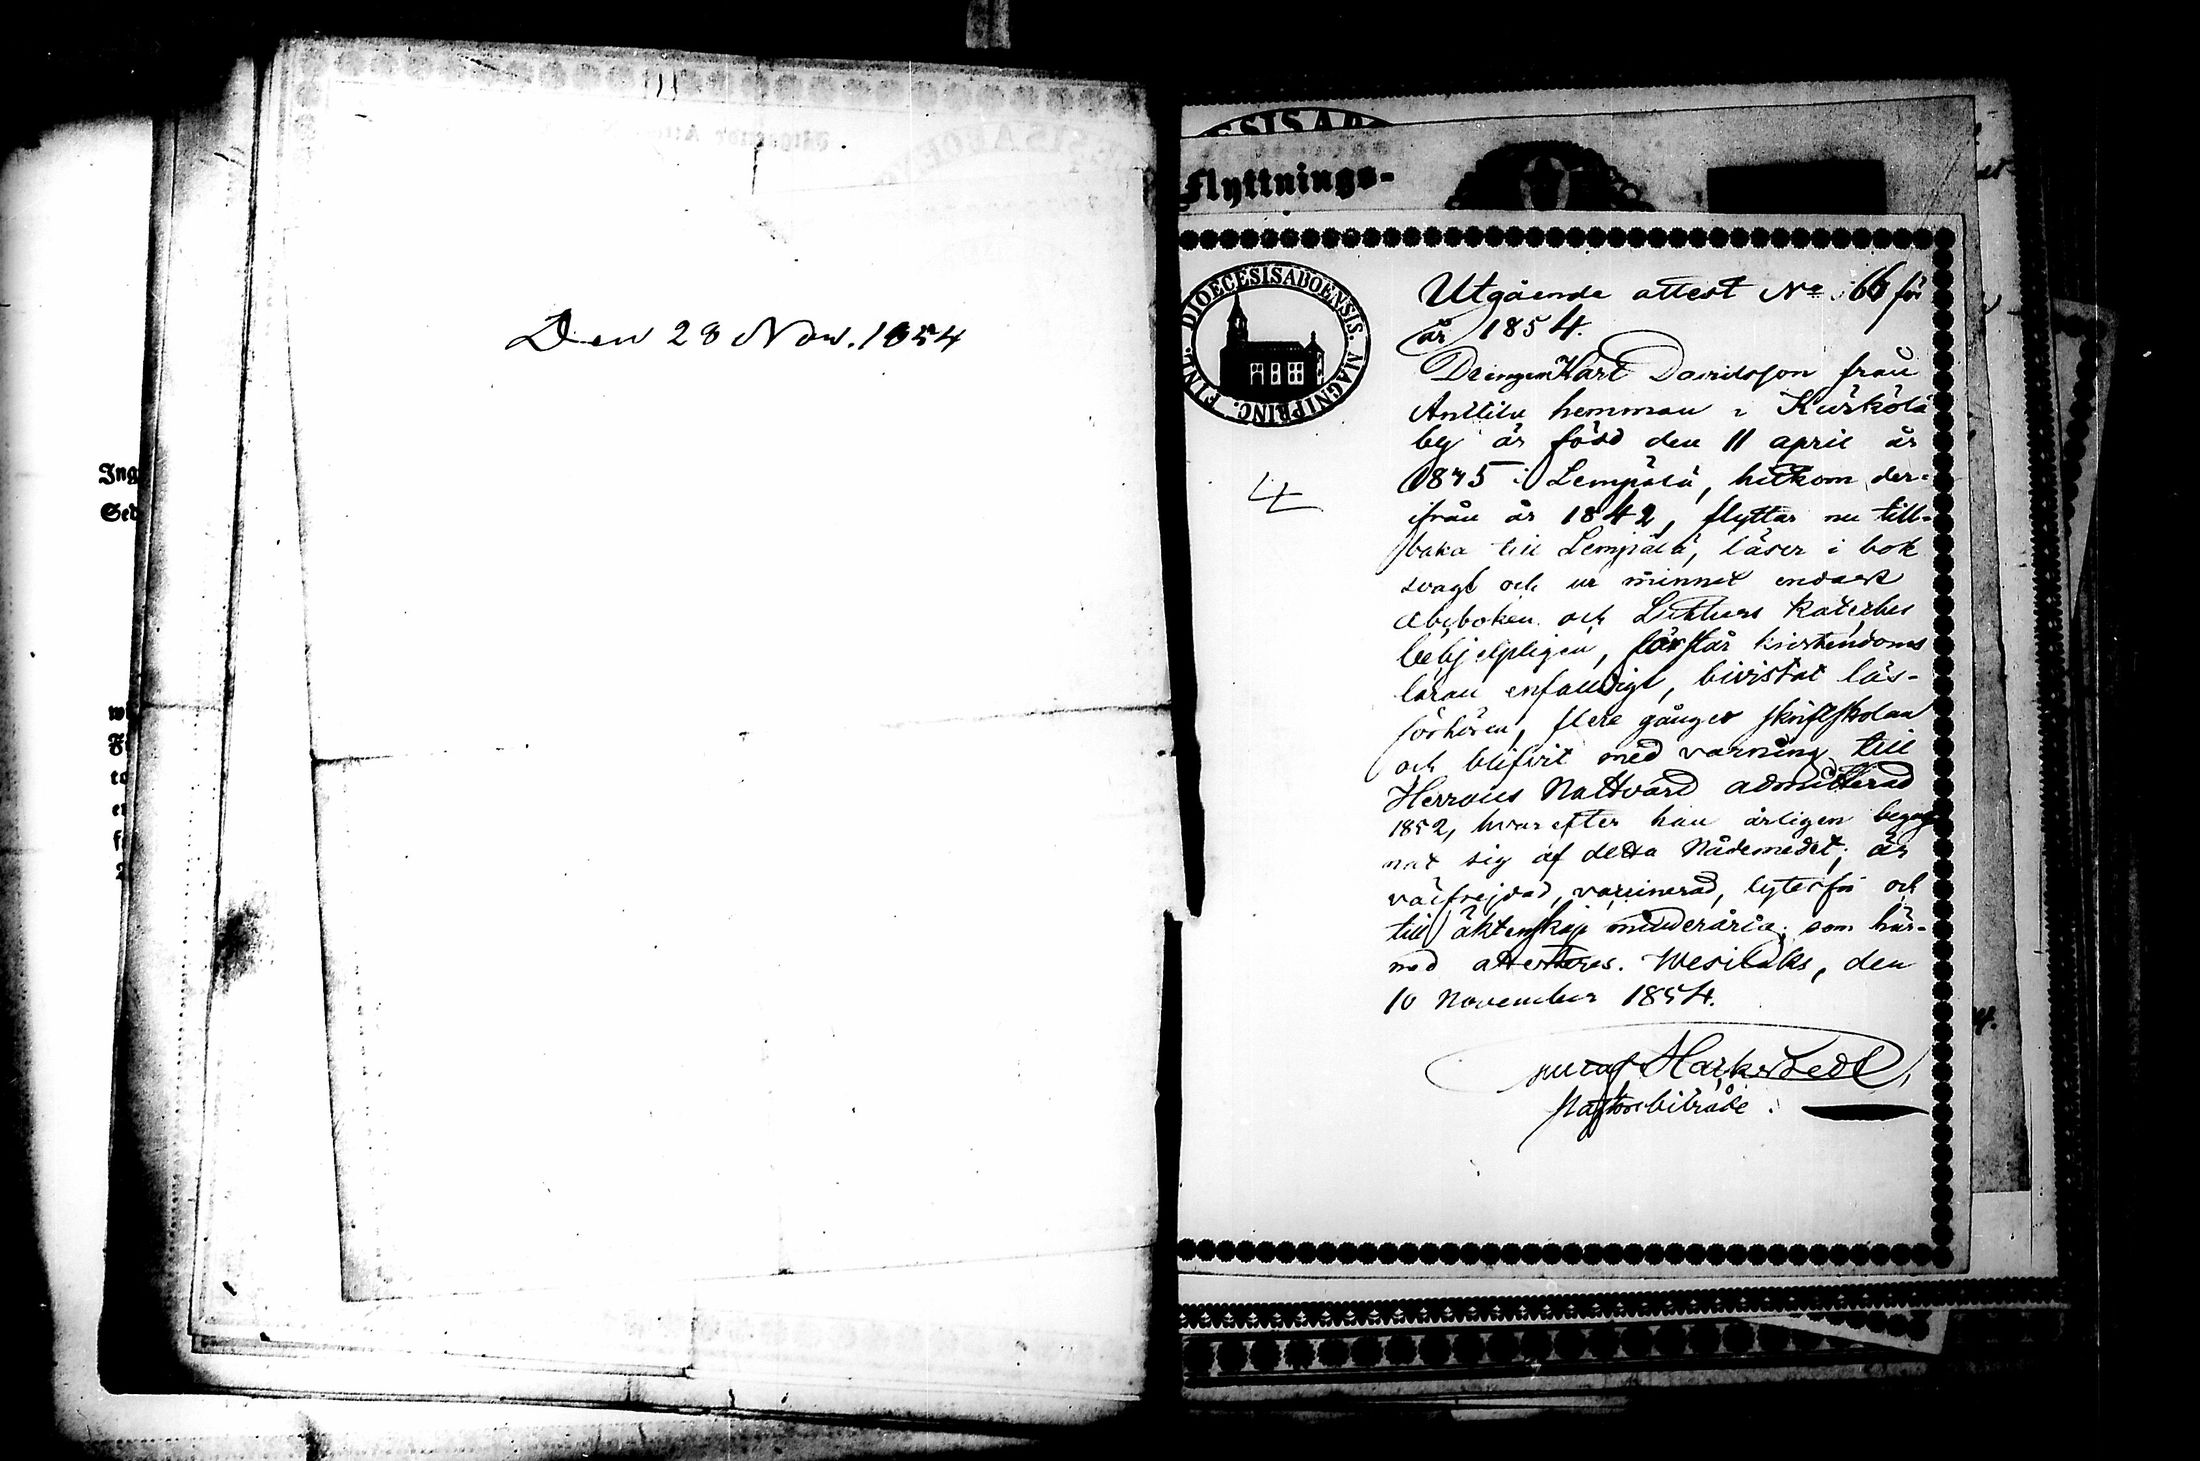 Den 28 Nov. 1854
Ing
Sed
ESIS ABO
Flyttnings-
DIOECESIS ABOENSIS. MAGNI PRINC. FINL.
4
Utgående attest No 66 för
år 1854.
Drengen Karl Davidsson från
Anttila hemman i Kurkola
by är född den 11 april år
1835 i Lempälä, hitkom der-
ifrån år 1842, flyttar nu till-
baka till Lempälä, läser i bok
svagt och ur minnet endast
abcboken och Luthers Kateches
behjelpligen, förstår kristendoms
läran enfaldigt, bivistat läs-
förhören, flere gånger skriftskolan
och blifvit med varning till
Herrans Nattvard admitterad
1852, hvarefter han årligen begag
nat sig af detta Nådemedel; är
välfrejdad, vaccinerad, lytesfri och
till äktenskap minderårig; som här-
med attesteras. Wesilaks, den
10 November 1854.
Pastorsbiträde.